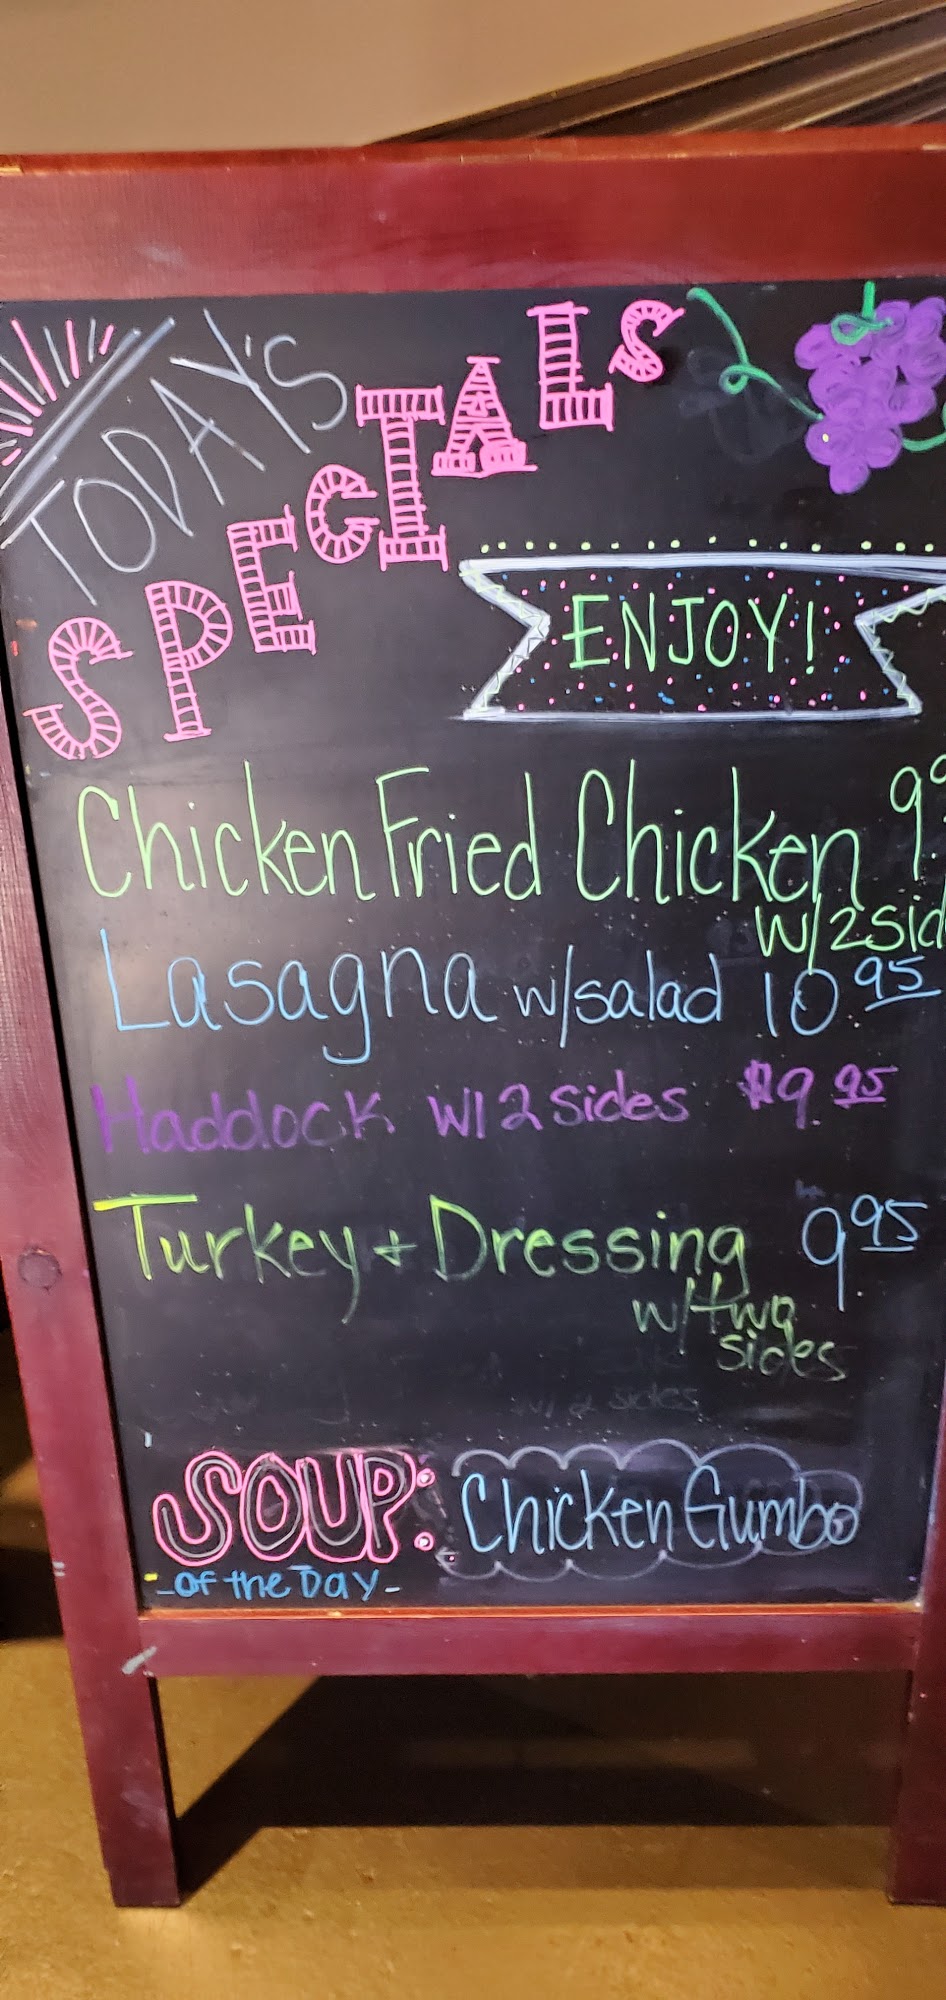 TODAY'S
SPECIALS
ENJOY!
Chicken Fried Chicken 9.9
w/2 sid
Lasagna w/salad 10.95
Haddock w/ 2 sides $9.95
Turkey + Dressing 9.95
w/two
sides
w/ 2 sides
SOUP: Chicken Gumbo
-of the Day-